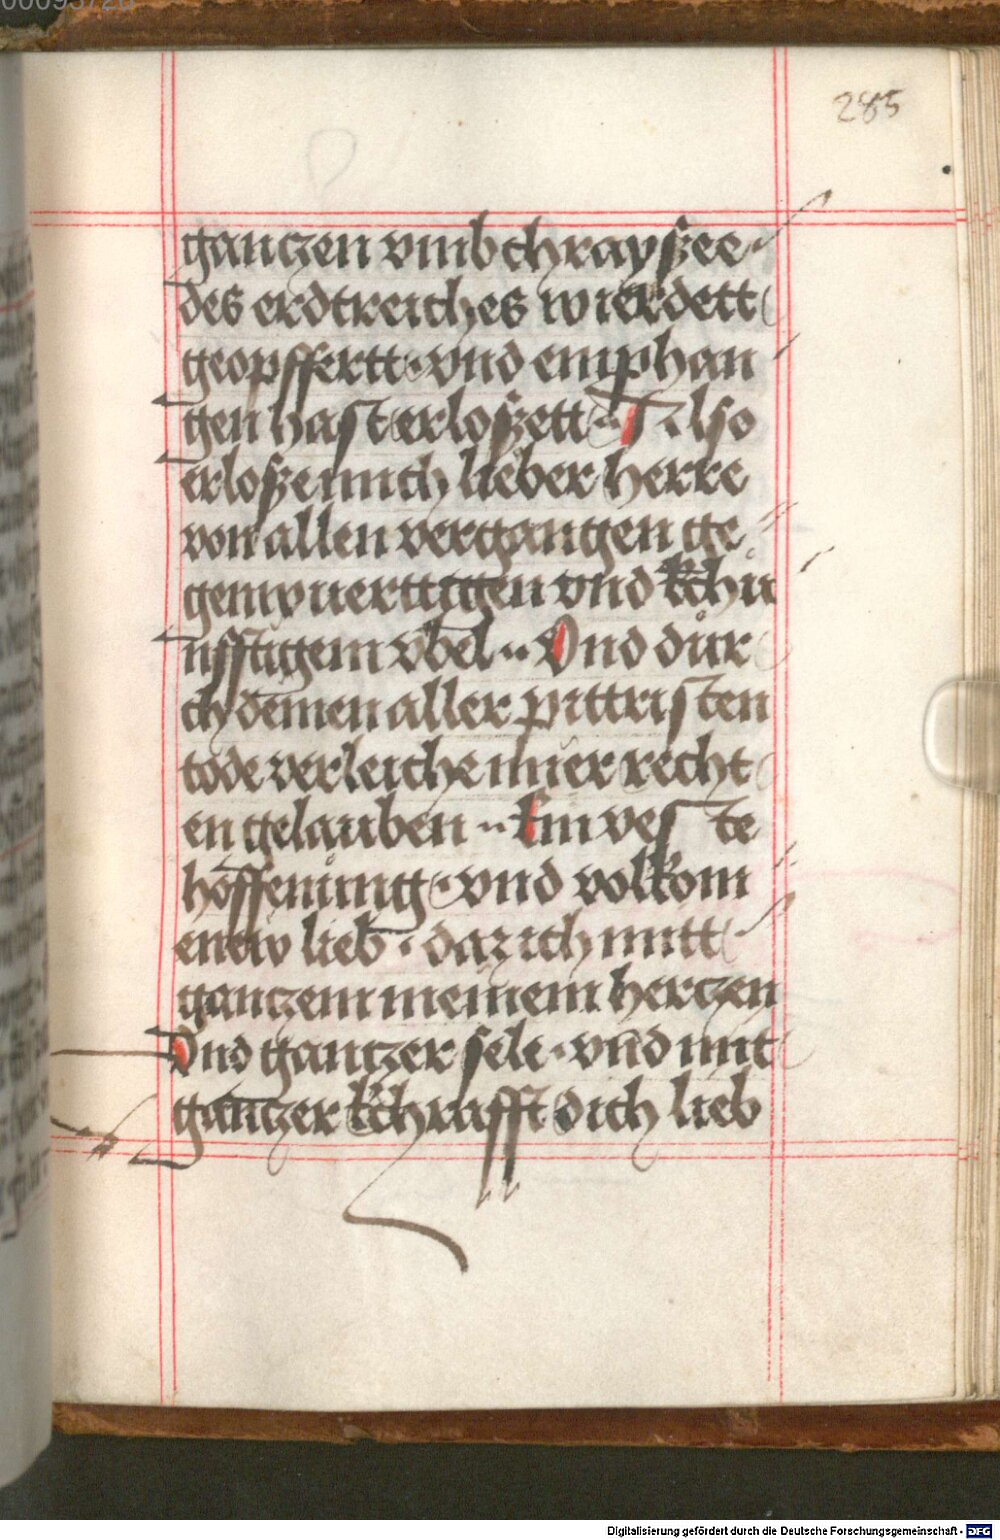 285
ganczen vmbchrayſzee·
des erdtreiches wierdett
geopffertt· vnd emphan
gen haſt erloſzett·· Alſo
erloſze mich lieber herre
von allen vergangen ge
genwuerttigen vnd kchu
nfftigem vbel·· Vnd dur
ch deinen aller pittriſten
tode verleiche mier recht
en gelauben·· Ein veſte
hoffenung· vnd volkom
enew lieb· daz ich mitt
ganczem meinem herczen
Vnd ganczer ſele· vnd mit
ganczer kchrafft dich lieb
Digitalisierung gefördert durch die Deutsche Forschungsgemeinschaft - DFG